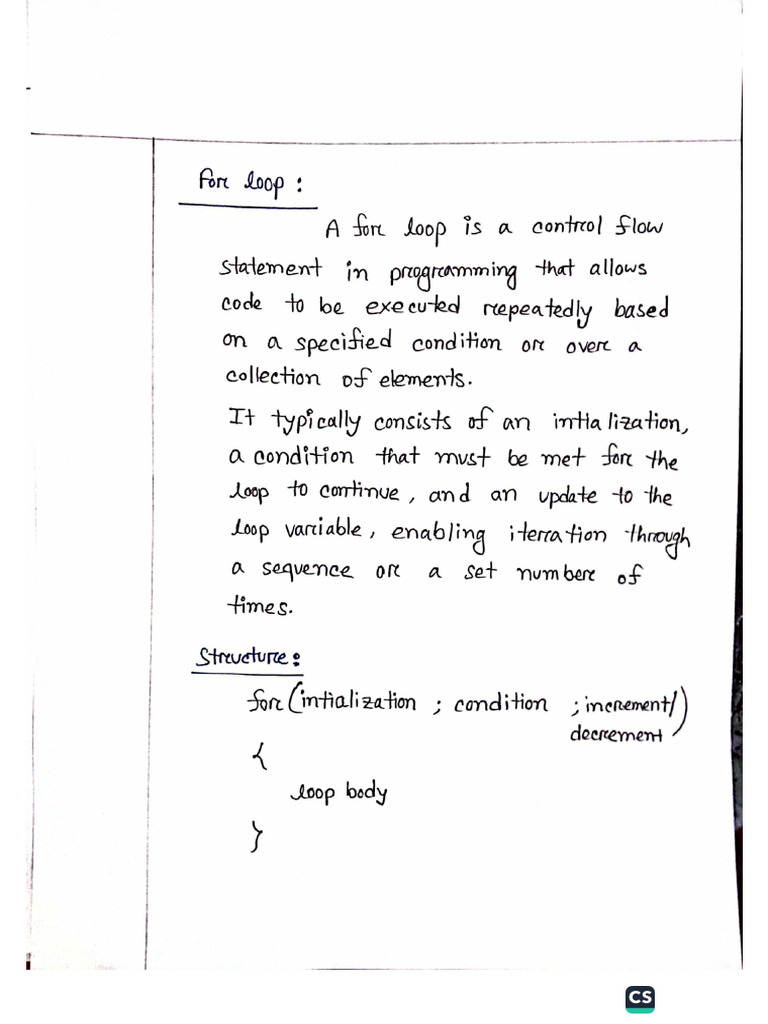 For loop :
A for loop is a control flow
statement in programming that allows
code to be executed repeatedly based
on a specified condition or over a
collection of elements.
It typically consists of an intialization,
a condition that must be met for the
loop to continue, and an update to the
loop variable, enabling iterration through
a sequence or a set number of
times.
Structure :
for (intialization ; condition ; increment/
decrement)
{
loop body
}
CS